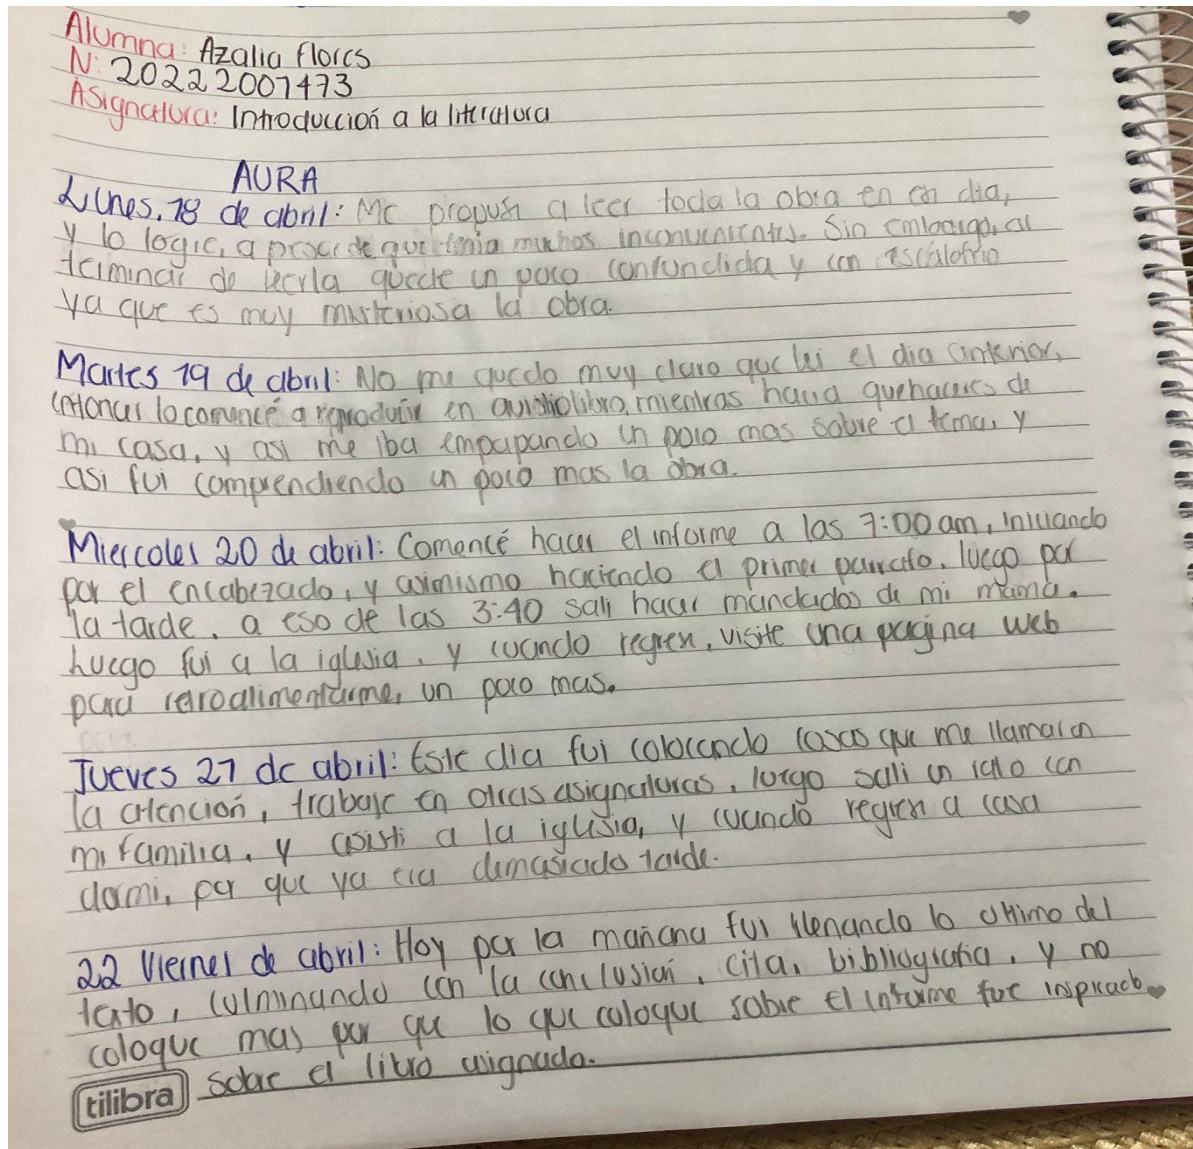 Alumna: Azalia Flores
N: 20222007473
Asignatura: Introducción a la literatura
AURA
Lunes, 18 de abril: Me propuse a leer toda la obra en un dia,
y lo logre, a pesar de que tenia muchos inconvenientes. Sin embargo, al
terminar de leerla quede un poco confundida y con escalofrio
ya que es muy misteriosa la obra.
Martes 19 de abril: No me quedo muy claro que lei el dia anterior,
entonces lo comencé a reproducir en audiolibro, mientras hacia quehaceres de
mi casa, y asi me iba empapando un poco mas sobre el tema, y
asi fui comprendiendo un poco mas la obra.
Miercoles 20 de abril: Comencé hacer el informe a las 7:00 am, iniciando
por el encabezado, y asimismo haciendo el primer parrafo. luego por
la tarde, a eso de las 3:40 sali hacer mandados de mi mama.
Luego fui a la iglesia, y cuando regrese, visite una pagina web
para retroalimentarme, un poco mas.
Jueves 21 de abril: Este dia fui colocando cosas que me llamaron
la atención, trabaje en otras asignaturas, luego sali un rato con
mi familia, y asisti a la iglesia, y cuando regrese a casa
dormi, por que ya era demasiado tarde.
22 Viernes de abril: Hoy por la mañana fui llenando lo ultimo del
texto, culminando con la conclusion, cita, bibliografia, y no
coloque mas por que lo que coloque sobre el informe fue inspirado
sobre el libro asignado.
tilibra